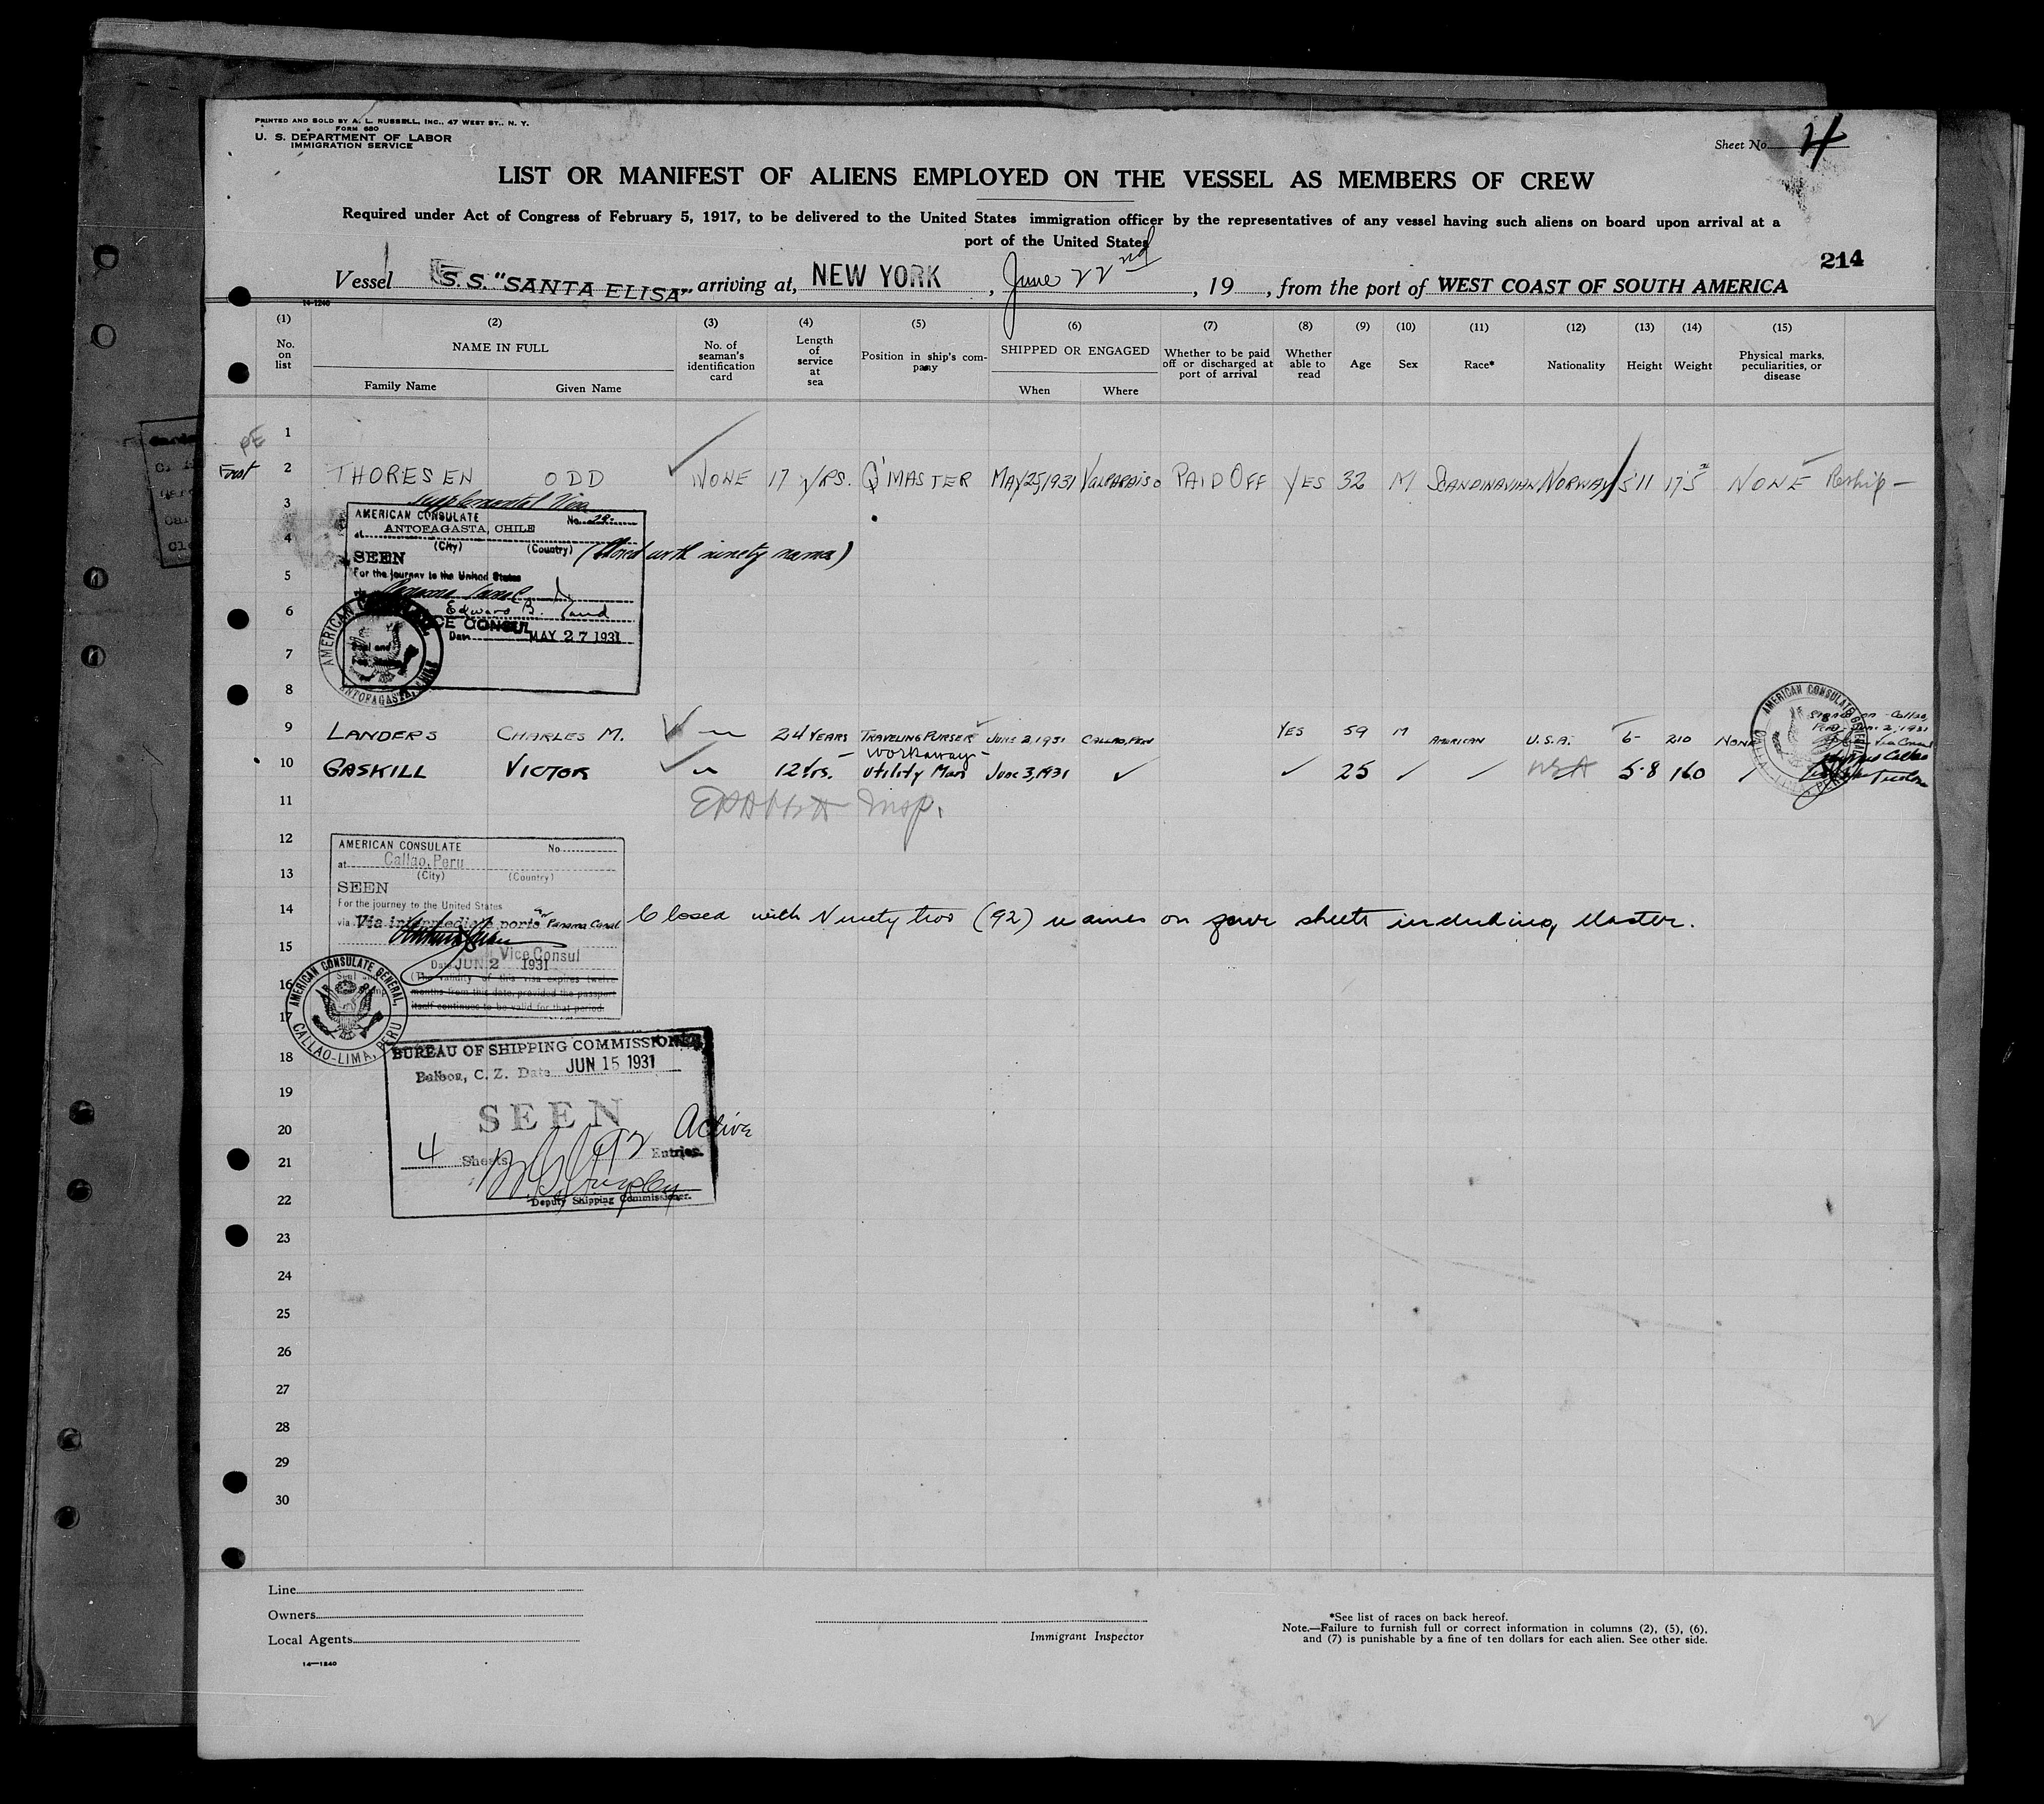 PRINTED AND SOLD BY A. L. RUSSELL, INC., 47 WEST ST., N. Y.
FORM 680
U. S. DEPARTMENT OF LABOR
IMMIGRATION SERVICE
Sheet No. 4
LIST OR MANIFEST OF ALIENS EMPLOYED ON THE VESSEL AS MEMBERS OF CREW
Required under Act of Congress of February 5, 1917, to be delivered to the United States immigration officer by the representatives of any vessel having such aliens on board upon arrival at a
port of the United States
214
Vessel S.S. "SANTA ELISA" arriving at, NEW YORK, June 22nd, 19 , from the port of WEST COAST OF SOUTH AMERICA
14-1240
(1) (2) (3) (4) (5) (6) (7) (8) (9) (10) (11) (12) (13) (14) (15)
No. on list
NAME IN FULL
Family Name Given Name
No. of seaman's identification card
Length of service at sea
Position in ship's company
SHIPPED OR ENGAGED
When Where
Whether to be paid off or discharged at port of arrival
Whether able to read
Age
Sex
Race*
Nationality
Height
Weight
Physical marks, peculiarities, or disease
1
2 THORESEN ODD NONE 17 YRS. Q'MASTER MAY 25, 1931 VALPARAISO PAID OFF YES 32 M SCANDINAVIAN NORWAY 5'11 175 NONE Reship —
3 Supplemental Visa
AMERICAN CONSULATE No.
at ANTOFAGASTA, CHILE
4
(City) (Country)
SEEN (Closed with ninety names)
5 For the journey to the United States
6 Edward B. Rand
VICE CONSUL
Date MAY 27 1931
7
AMERICAN CONSULATE
ANTOFAGASTA, CHILE
8
9 LANDERS CHARLES M. 24 YEARS TRAVELING PURSER JUNE 2, 1931 CALLAO, PERU YES 59 M AMERICAN U.S.A. 6- 210 NONE
Workaway
10 GASKILL VICTOR 12 Yrs. Utility Man June 3, 1931 25 USA 5-8 160
AMERICAN CONSULATE GENERAL
11 Insp.
12
AMERICAN CONSULATE No.
at Callao, Peru
13 (City) (Country)
SEEN
For the journey to the United States
14 via Via intermediate ports Panama Canal Closed with Ninety two (92) names on four sheets including Master.
15 Vice Consul
Date JUN 2 1931
16 (The validity of this visa expires twelve
months from this date, provided the passport
itself continues to be valid for that period.
AMERICAN CONSULATE GENERAL,
CALLAO-LIMA, PERU
17
BUREAU OF SHIPPING COMMISSIONER
18 Balboa, C. Z. Date JUN 15 1931
19
SEEN
20 Active
4 Sheets 92 Entries
21
22 Deputy Shipping Commissioner.
23
24
25
26
27
28
29
30
Line
Owners
Local Agents
14—1240
Immigrant Inspector
*See list of races on back hereof.
Note.—Failure to furnish full or correct information in columns (2), (5), (6),
and (7) is punishable by a fine of ten dollars for each alien. See other side.
2